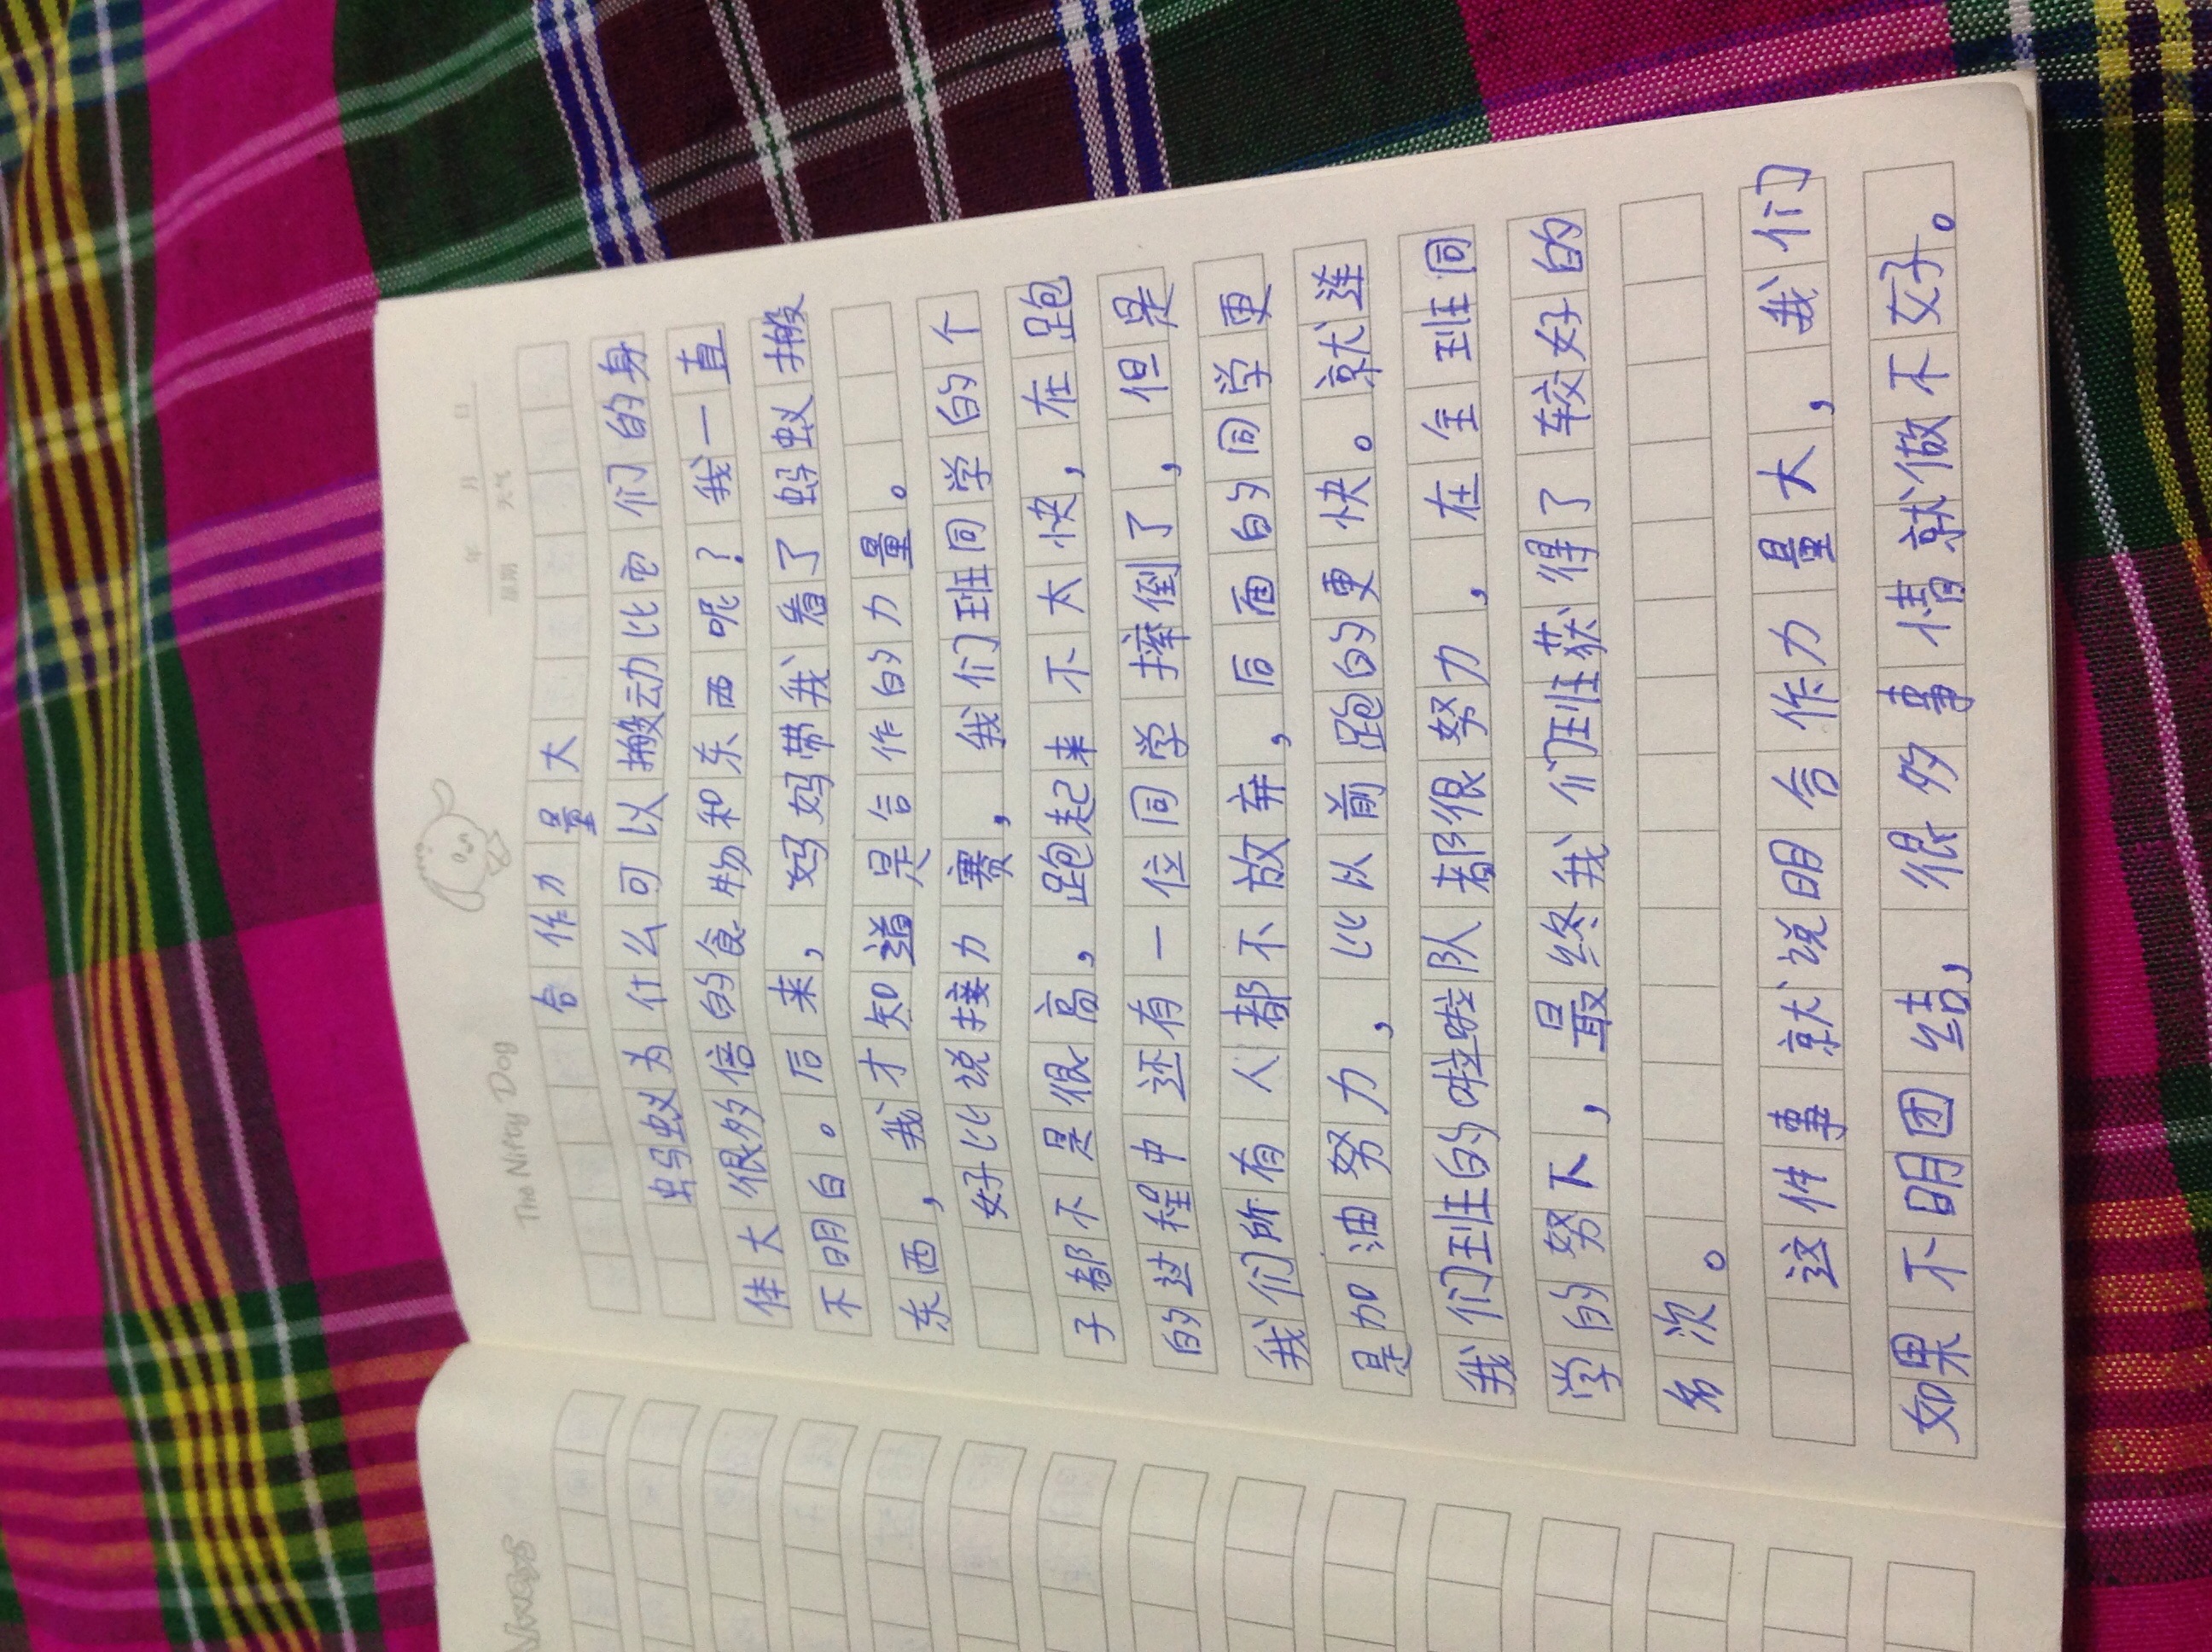 The Nifty Dog
年 月 日
星期 天气
合作力量大
蚂蚁为什么可以搬动比它们的身
体大很多倍的食物和东西呢？我一直
不明白。后来，妈妈带我看了蚂蚁搬
东西，我才知道是合作的力量。
好比说接力赛，我们班同学的个
子都不是很高，跑起来不太快，在跑
的过程中还有一位同学摔倒了，但是
我们所有人都不放弃，后面的同学更
是加油努力，比以前跑的更快。就连
我们班的啦啦队都很努力，在全班同
学的努下，最终我们班获得了较好的
名次。
这件事就说明合作力量大，我们
如果不明团结，很多事情就做不好。